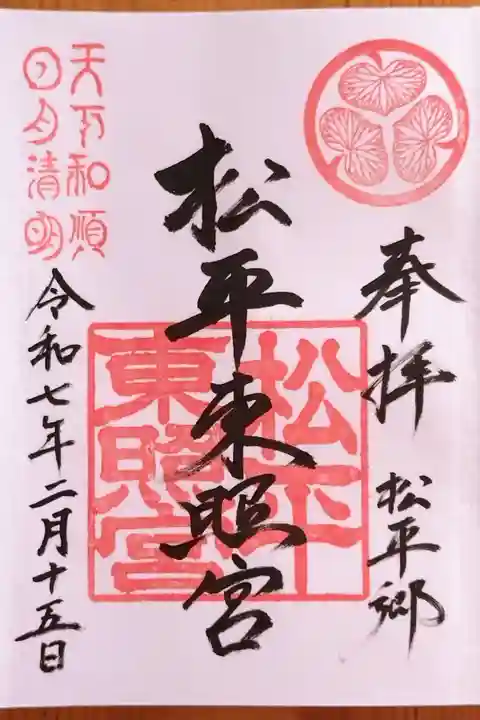 奉拝 松平郷
松平東照宮
松平
東照宮
天下和順
日月清明
令和七年二月十五日